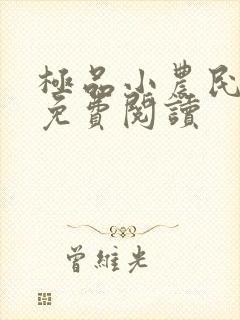 極品小農民
免費閱讀
曾維光